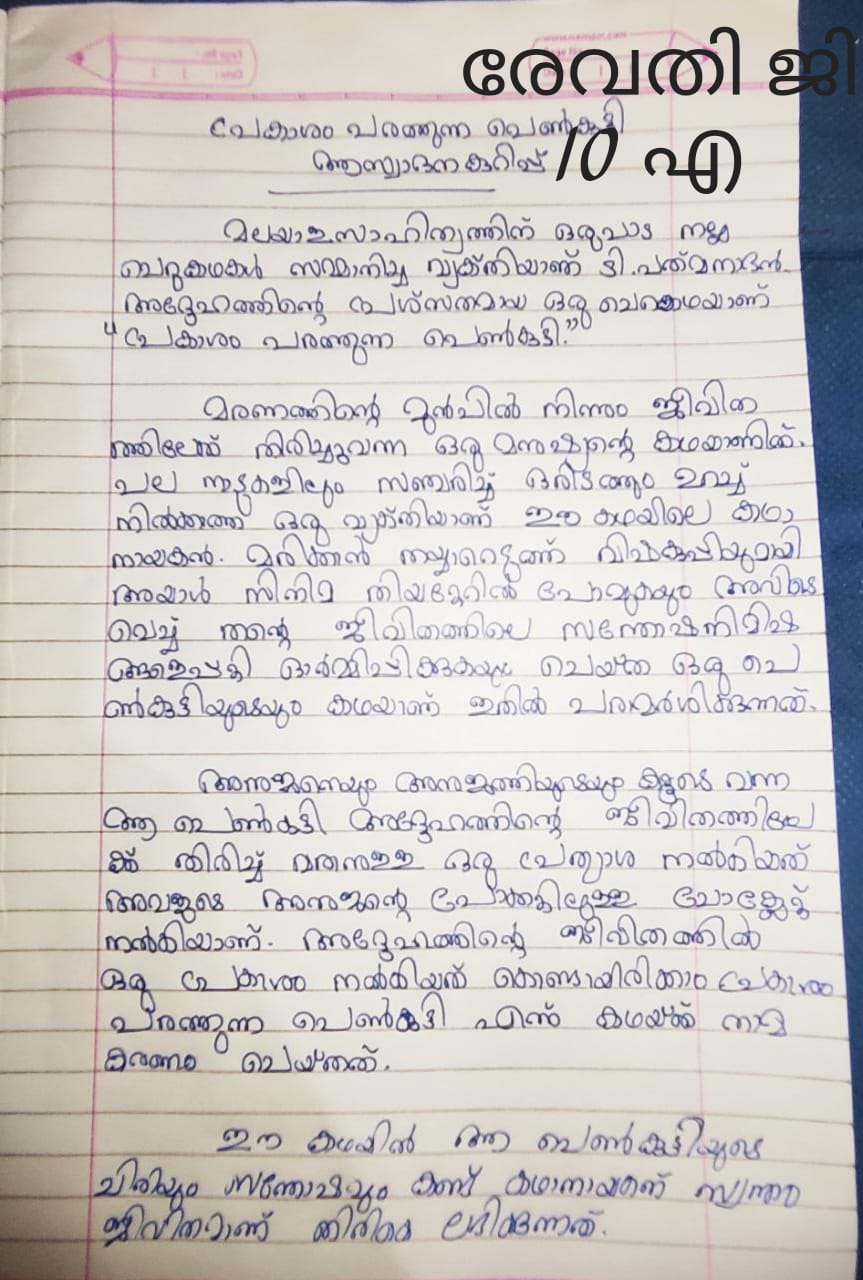 രേവതി ജി
10 എ
പ്രകാശം പരത്തുന്ന പെൺകുട്ടി
ആസ്വാദനകുറിപ്പ്
മലയാളസാഹിത്യത്തിന് ഒരുപാട് നല്ല
ചെറുകഥകൾ സമ്മാനിച്ച വ്യക്തിയാണ് ടി.പത്മനാഭൻ.
അദ്ദേഹത്തിന്റെ പ്രശസ്തമായ ഒരു ചെറുകഥയാണ്
"പ്രകാശം പരത്തുന്ന പെൺകുട്ടി."
മരണത്തിന്റെ മുൻപിൽ നിന്നും ജീവിത
ത്തിലേക്ക് തിരിച്ചുവന്ന ഒരു മനുഷ്യന്റെ കഥയാണിത്.
പല നാടുകളിലും സഞ്ചരിച്ച് ഒരിടത്തും ഉറച്ച്
നിൽക്കാത്ത ഒരു വ്യക്തിയാണ് ഈ കഥയിലെ കഥാ
നായകൻ. മരിക്കാൻ തയ്യാറെടുത്ത് വിഷകുപ്പിയുമായി
അയാൾ സിനിമ തിയേറ്ററിൽ പോവുകയും അവിടെ
വെച്ച് തന്റെ ജീവിതത്തിലെ സന്തോഷനിമിഷ
ങ്ങളെപ്പറ്റി ഓർമ്മിപ്പിക്കുകയും ചെയ്ത ഒരു പെ
ൺകുട്ടിയുടെയും കഥയാണ് ഇതിൽ പരാമർശിക്കുന്നത്.
അനുജനെയും അനുജത്തിയുടെയും കൂടെ വന്ന
ആ പെൺകുട്ടി അദ്ദേഹത്തിന്റെ ജീവിതത്തിലേ
ക്ക് തിരിച്ച് വരാനുള്ള ഒരു പ്രത്യാശ നൽകിയത്
അവളുടെ അനുജന്റെ പോക്കറ്റിലുള്ള ചോക്ലേറ്റ്
നൽകിയാണ്. അദ്ദേഹത്തിന്റെ ജീവിതത്തിൽ
ഒരു പ്രകാശം നൽകിയത് കൊണ്ടായിരിക്കാം പ്രകാശം
പരത്തുന്ന പെൺകുട്ടി എന്ന് കഥയ്ക്ക് നാമ
കരണം ചെയ്തത്.
ഈ കഥയിൽ ആ പെൺകുട്ടിയുടെ
ചിരിയും സന്തോഷവും കണ്ട് കഥാനായകന് സ്വന്തം
ജീവിതമാണ് തിരികെ ലഭിക്കുന്നത്.